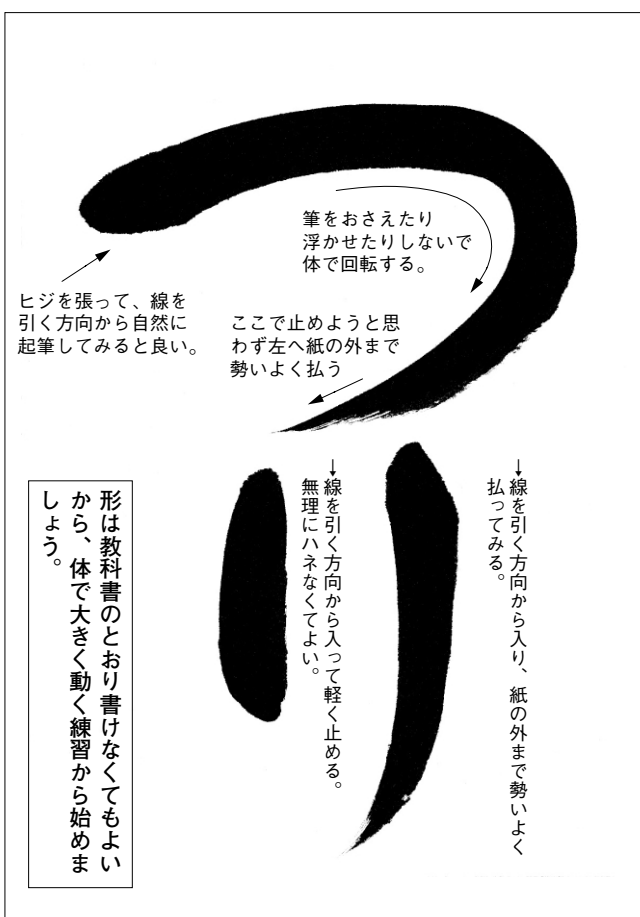 つり
筆をおさえたり
浮かせたりしないで
体で回転する。
ヒジを張って、線を
引く方向から自然に
起筆してみると良い。
ここで止めようと思
わず左へ紙の外まで
勢いよく払う
→線を引く方向から入り、紙の外まで勢いよく
払ってみる。
→線を引く方向から入って軽く止める。
無理にハネなくてよい。
形は教科書のとおり書けなくてもよい
から、体で大きく動く練習から始めま
しょう。